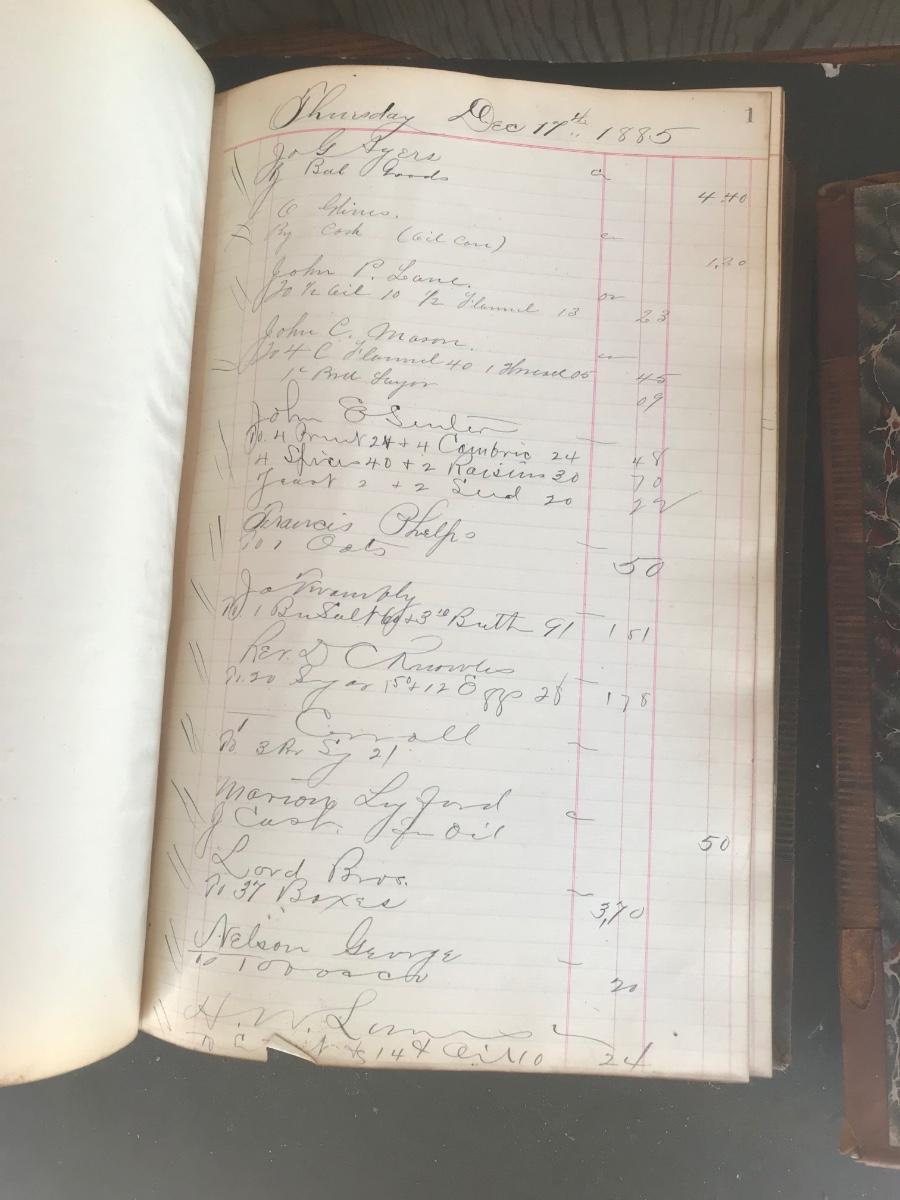 1
Thursday Dec 17th 1885
Jo G Ayers
By Bal Goods 4 40
C Glines.
By Cash (Oil Can) 1,20
John P. Lane.
To 1/2 Oil 10 1/2 Flannel 13 23
John C. Mason.
To 4 C Flannel 40 1 Thread 05 45
09
John E Senter
To 4 Print 24 + 4 Cambric 24 48
4 Spices 40 + 2 Raisins 30 70
Yeast 2 + 2 Seed 20 22
Francis Phelps
To 1 Oats 50
Jo Trombly
To 1 Bu Salt 60 + 3 lb Butt 91 1 51
Rev. D C Knowles
To 20 Sugar 150 + 12 Eggs 28 1 78
Carroll
To 3 21
Marion Lyford
By Cash for Oil 50
Lord Bros.
To 37 Boxes 3,70
Nelson George
To Tobacco 20
H. W.
To 14 + Oil 10 24